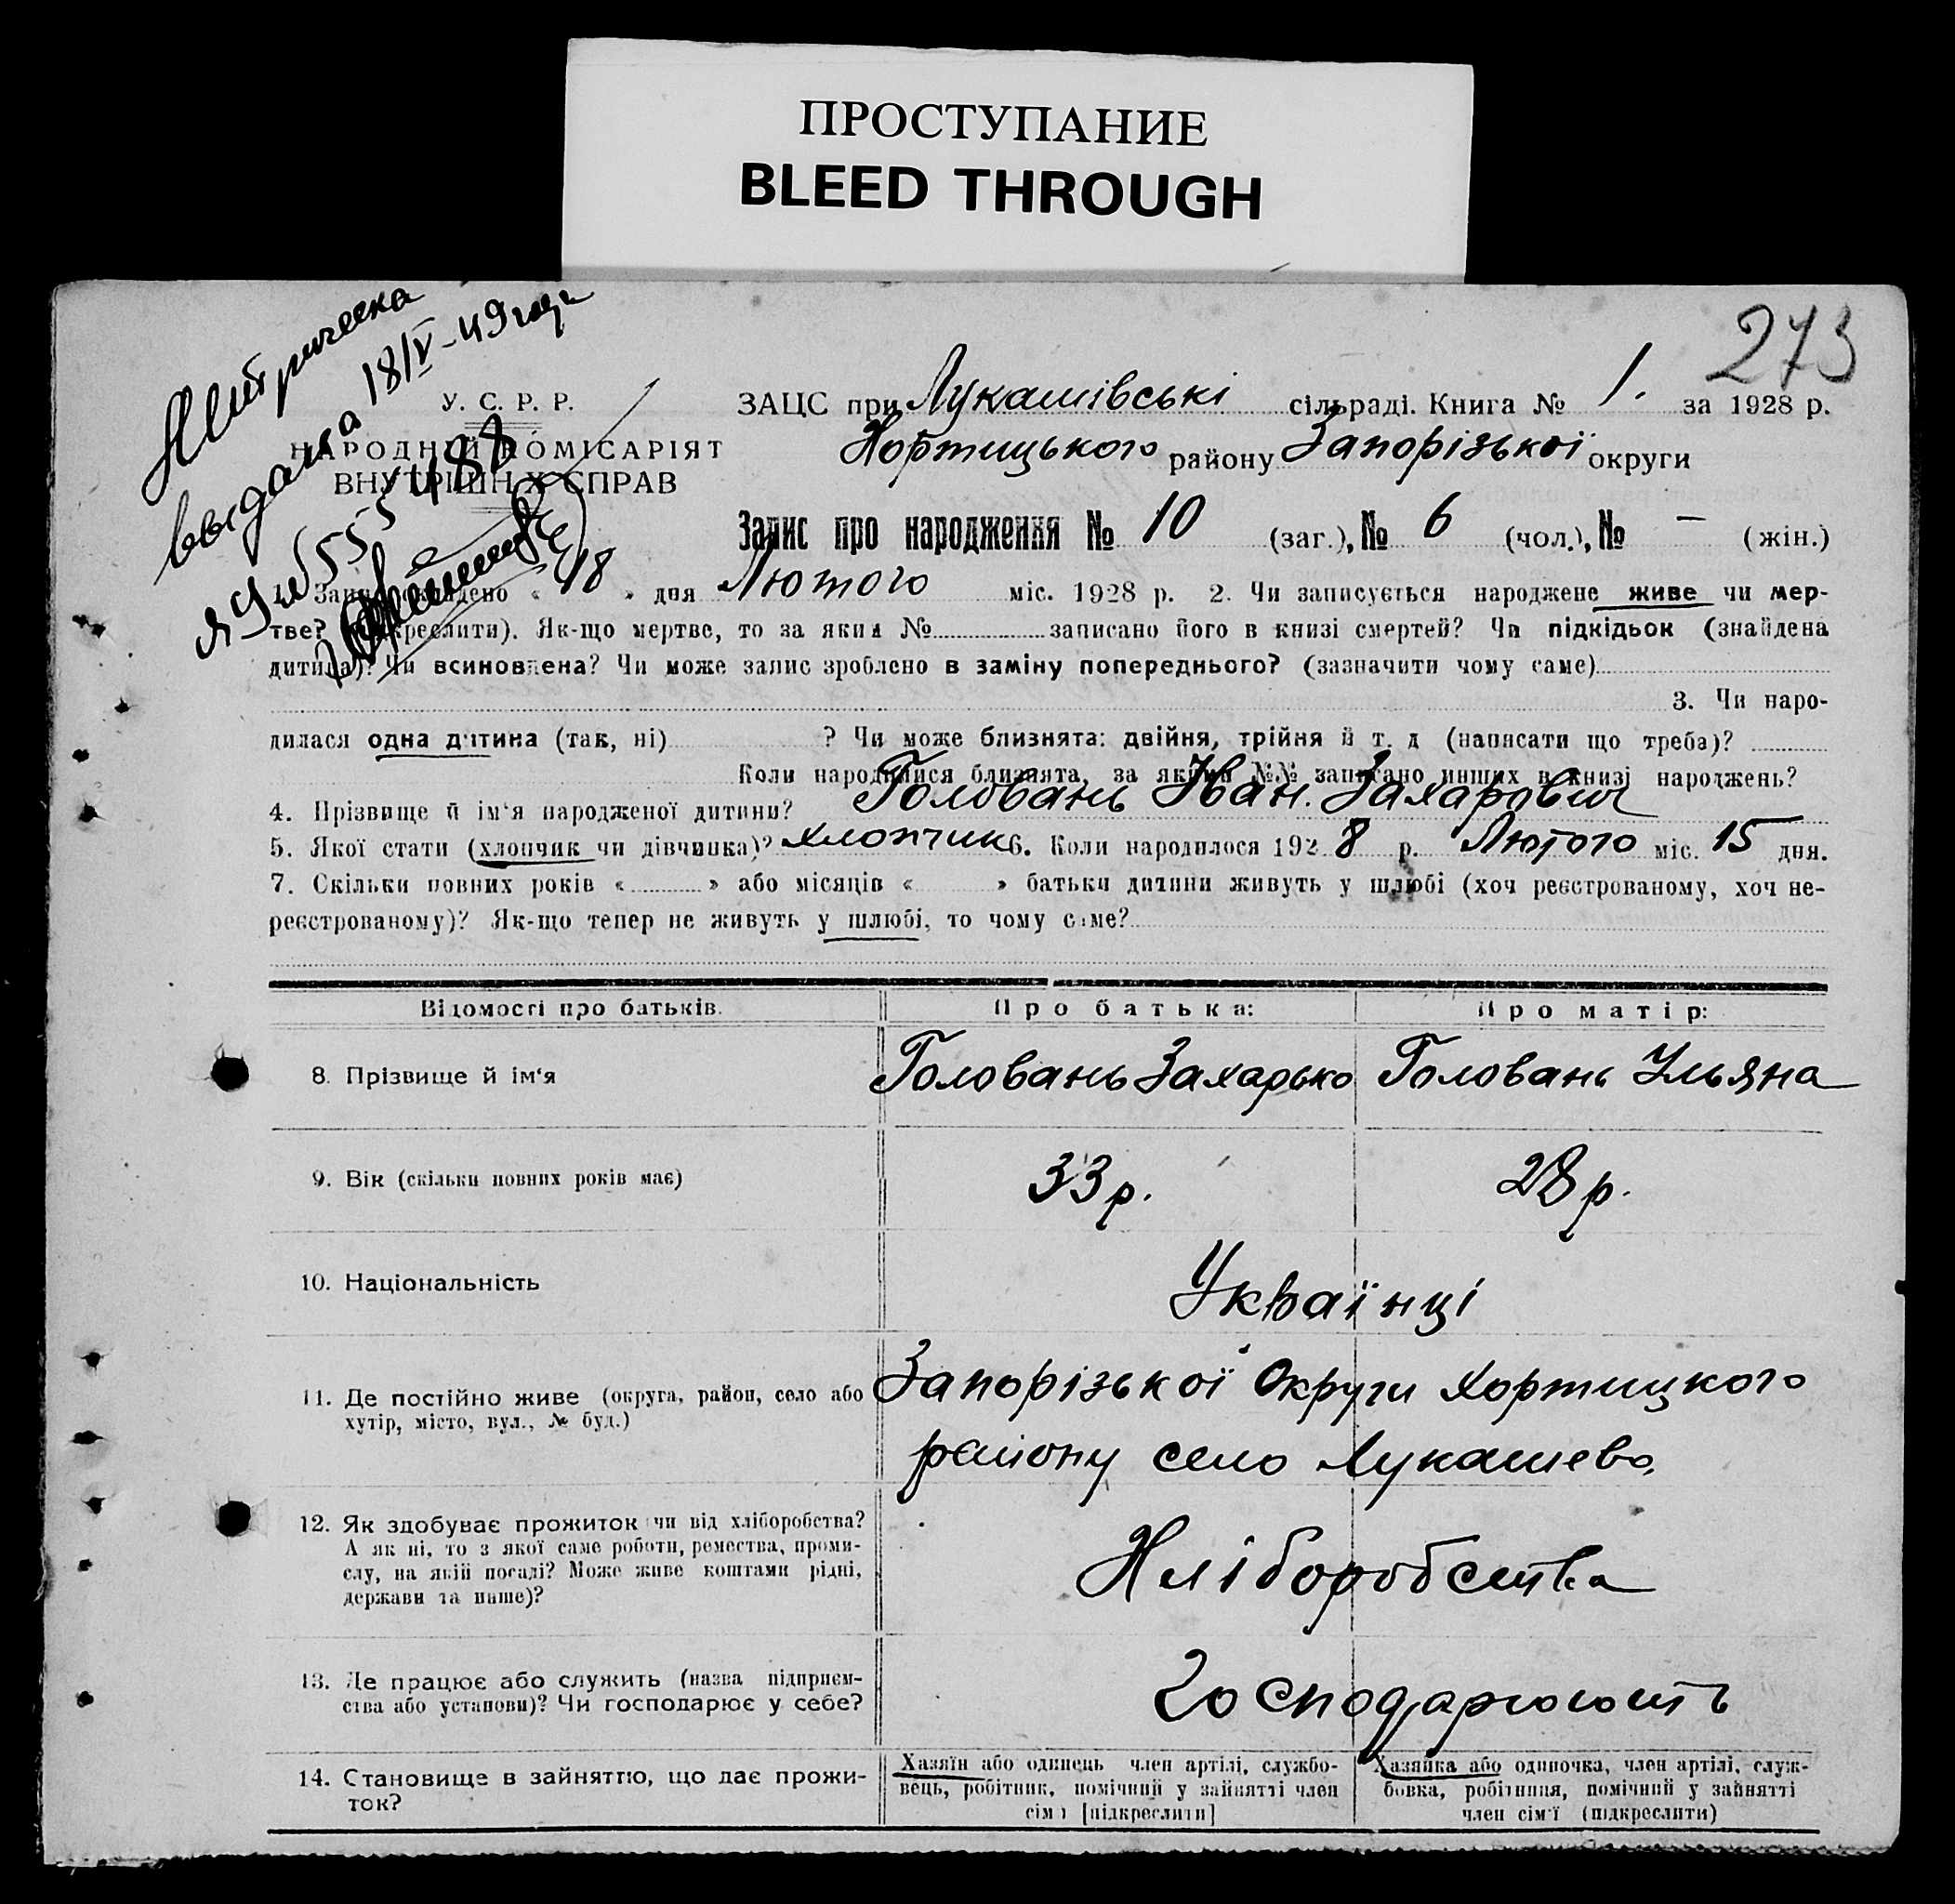 ПРОСТУПАНИЕ
BLEED THROUGH
273
Метрическа
выдана 18/V-49 года
У. С. Р. Р.
НАРОДНІЙ КОМІСАРІЯТ
ВНУТРІШНІХ СПРАВ
ЗАЦС при Лукашівські сільраді. Книга № 1. за 1928 р.
Хортицького району Запорізької округи
Запис про народження № 10 (заг.), № 6 (чол.), № — (жін.)
1. Запис складено « 18 » дня Лютого міс. 1928 р. 2. Чи записується народжене живе чи мер-
тве? (підкреслити). Як-що мертве, то за яким № записано його в книзі смертей? Чи підкідьок (знайдена
дитина)? Чи всиновлена? Чи може запис зроблено в заміну попереднього? (зазначити чому саме)
3. Чи наро-
дилася одна дитина (так, ні) ? Чи може близнята: двійня, трійня й т. д (написати що треба)?
Коли народилися близнята, за якими №№ записано инших в книзі народжень?
4. Прізвище й ім'я народженої дитини? Головань Іван. Захарович
5. Якої стати (хлопчик чи дівчинка)? хлопчик 6. Коли народилося 1928 р. Лютого міс. 15 дня.
7. Скільки повних років « » або місяців « » батьки дитини живуть у шлюбі (хоч реєстрованому, хоч не-
реєстрованому)? Як-що тепер не живуть у шлюбі, то чому саме?
Відомості про батьків. Про батька: Про матір:
8. Прізвище й ім'я Головань Захарько Головань Ульяна
9. Вік (скільки повних років має) 33 р. 28 р.
10. Національність Українці
11. Де постійно живе (округа, район, село або Запорізької Округи Хортицкого
хутір, місто, вул., № буд.) району село Лукашево
12. Як здобуває прожиток чи від хліборобства?
А як ні, то з якої саме роботи, ремества, проми-
слу, на якій посаді? Може живе коштами рідні, Хліборобства
держави та инше)?
13. Де працює або служить (назва підприєм-
ства або установи)? Чи господарює у себе? господарюють
14. Становище в зайняттю, що дає прожи-
ток?
Хазяїн або одинець член артілі, службо-
вець, робітник, помічний у зайнятті член
сім'ї [підкреслити]
Хазяйка або одиночка, член артілі, служ-
бовка, робітниця, помічний у зайнятті
член сім'ї (підкреслити)